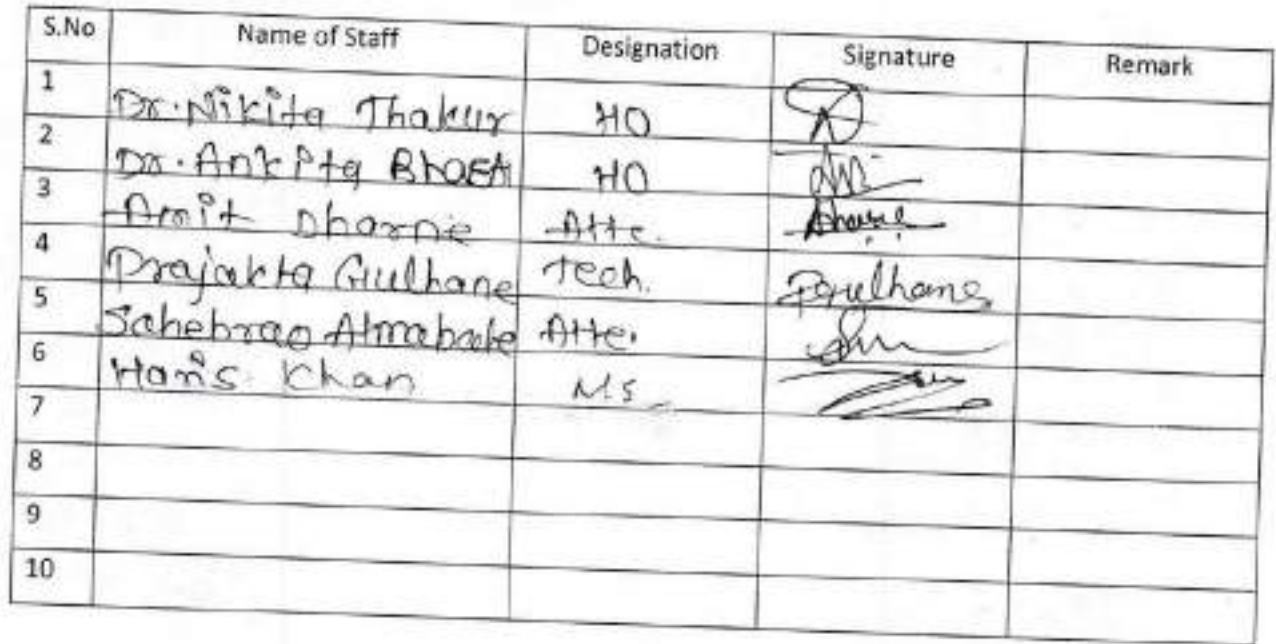 S.No Name of Staff Designation Signature Remark
1 Dr. Nikita Thakur HO
2 Dr. Ankita HO
3 Amit Dharne Atte. Dharne
4 Prajakta Gulhane Tech. PGulhane
5 Sahebrao Atte.
6 Haris Khan MS
7
8
9
10